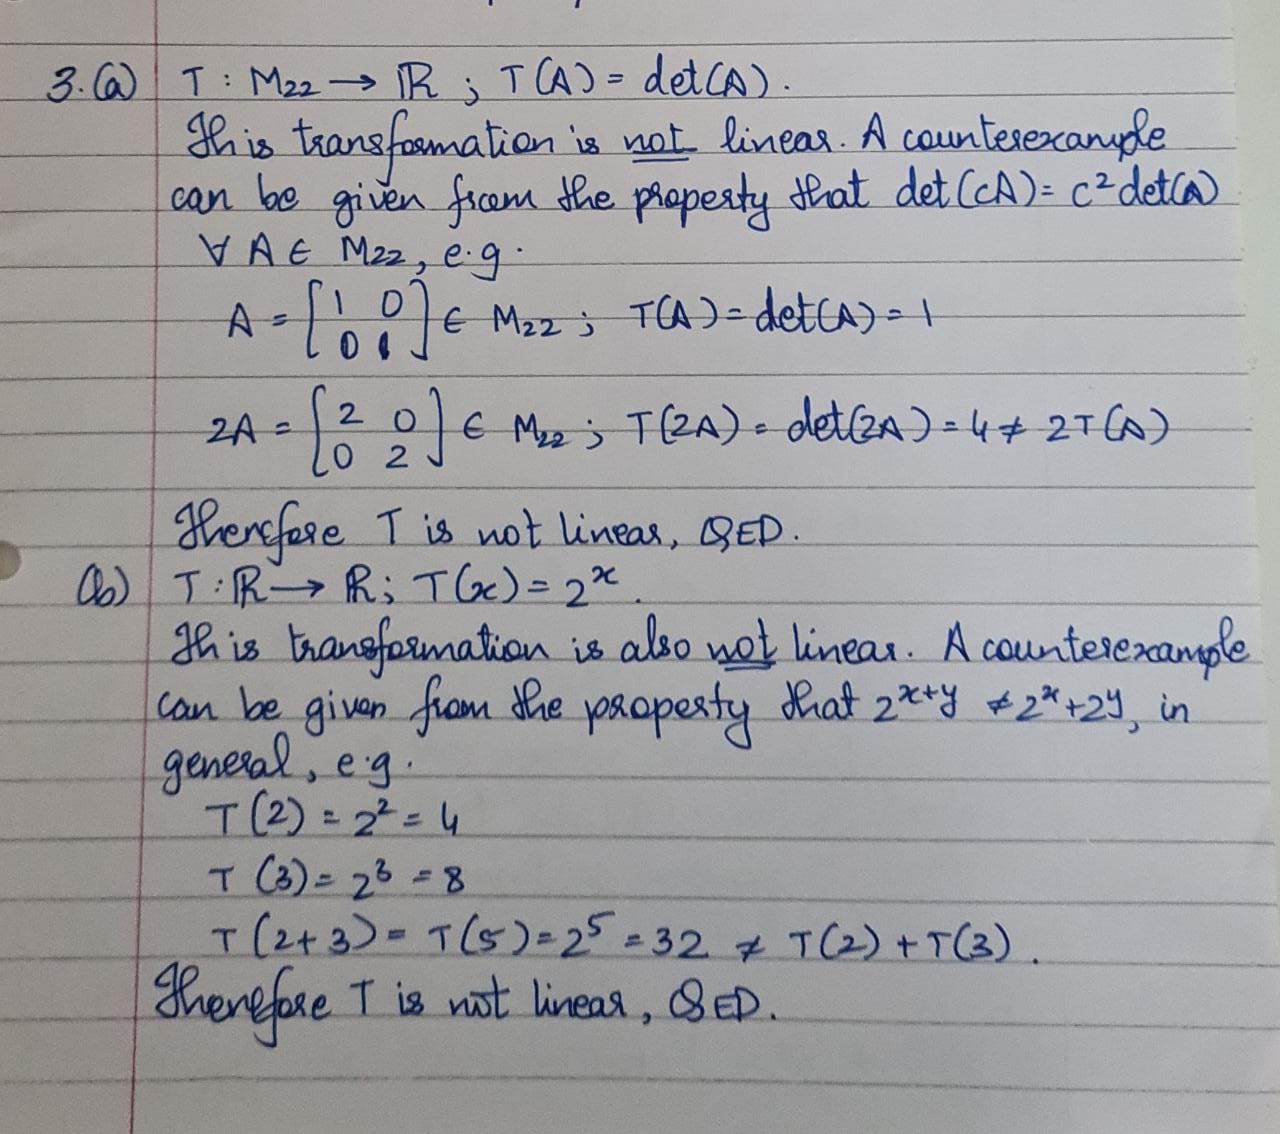 3.(a) T : M₂₂ → ℝ ; T(A) = det(A).
This transformation is not linear. A counterexample
can be given from the property that det(cA) = c² det(A)
∀ A ∈ M₂₂, e.g.
A = [1 0; 0 1] ∈ M₂₂ ; T(A) = det(A) = 1
2A = [2 0; 0 2] ∈ M₂₂ ; T(2A) = det(2A) = 4 ≠ 2T(A)
Therefore T is not linear, QED.
(b) T : ℝ → ℝ ; T(x) = 2ˣ.
This transformation is also not linear. A counterexample
can be given from the property that 2ˣ⁺ʸ ≠ 2ˣ + 2ʸ, in
general, e.g.
T(2) = 2² = 4
T(3) = 2³ = 8
T(2+3) = T(5) = 2⁵ = 32 ≠ T(2) + T(3).
Therefore T is not linear, QED.